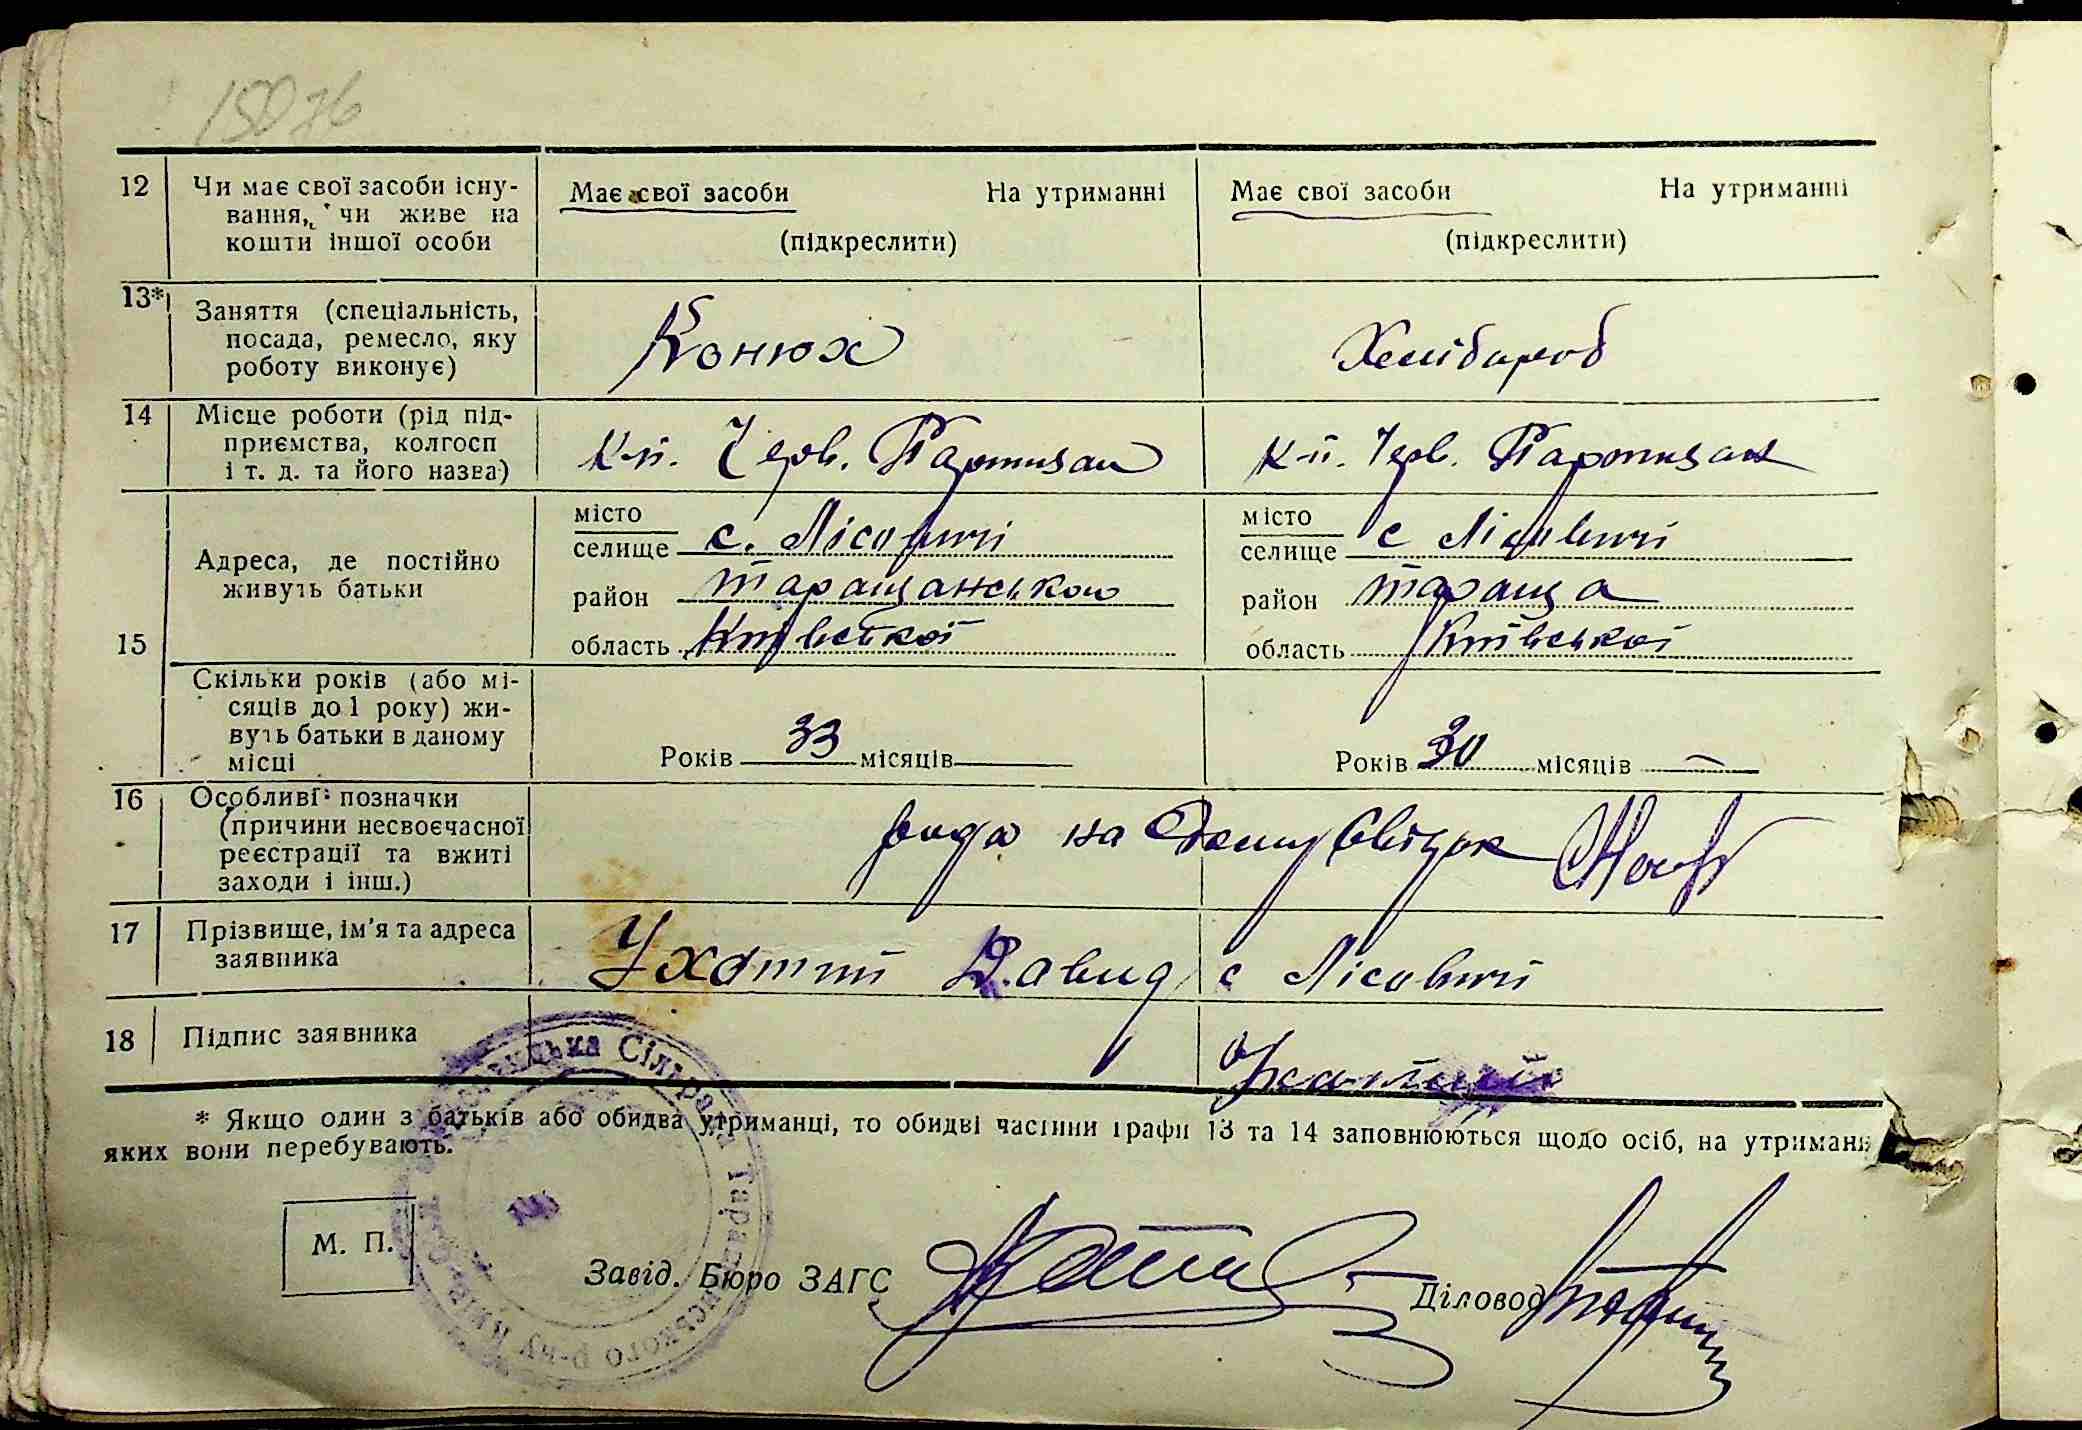 15076
12 Чи має свої засоби існу- Має свої засоби На утриманні Має свої засоби На утриманні
вання, чи живе на
кошти іншої особи (підкреслити) (підкреслити)
13* Заняття (спеціальність,
посада, ремесло, яку Конюх Хлібороб
роботу виконує)
14 Місце роботи (рід під-
приємства, колгосп К-п. Черв. Партизан К-п. Черв. Партизан
і т. д. та його назва)
15 Адреса, де постійно
живуть батьки
місто місто
селище с. Лісовичі селище с Лісовичі
район Таращанською район Тараща
область Київської область Київської
Скільки років (або мі-
сяців до 1 року) жи-
вуть батьки в даному
місці Років 33 місяців Років 30 місяців —
16 Особливі позначки
(причини несвоєчасної на
реєстрації та вжиті
заходи і інш.)
17 Прізвище, ім'я та адреса
заявника Ухатий Давид с Лісовичі
18 Підпис заявника Ухатий
* Якщо один з батьків або обидва утриманці, то обидві частини графи 13 та 14 заповнюються щодо осіб, на утриманн
яких вони перебувають.
Сільрада Таращанського р-ну
М. П.
Завід. Бюро ЗАГС Діловод